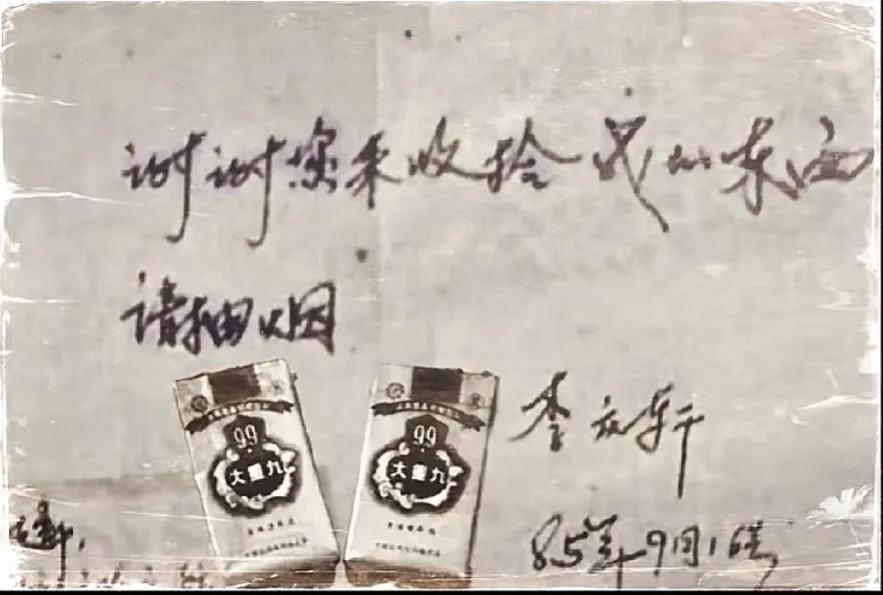 谢谢您来收拾我的东西
请抽烟
99
大重九
99
大重九
李庆轩
85年9月16号